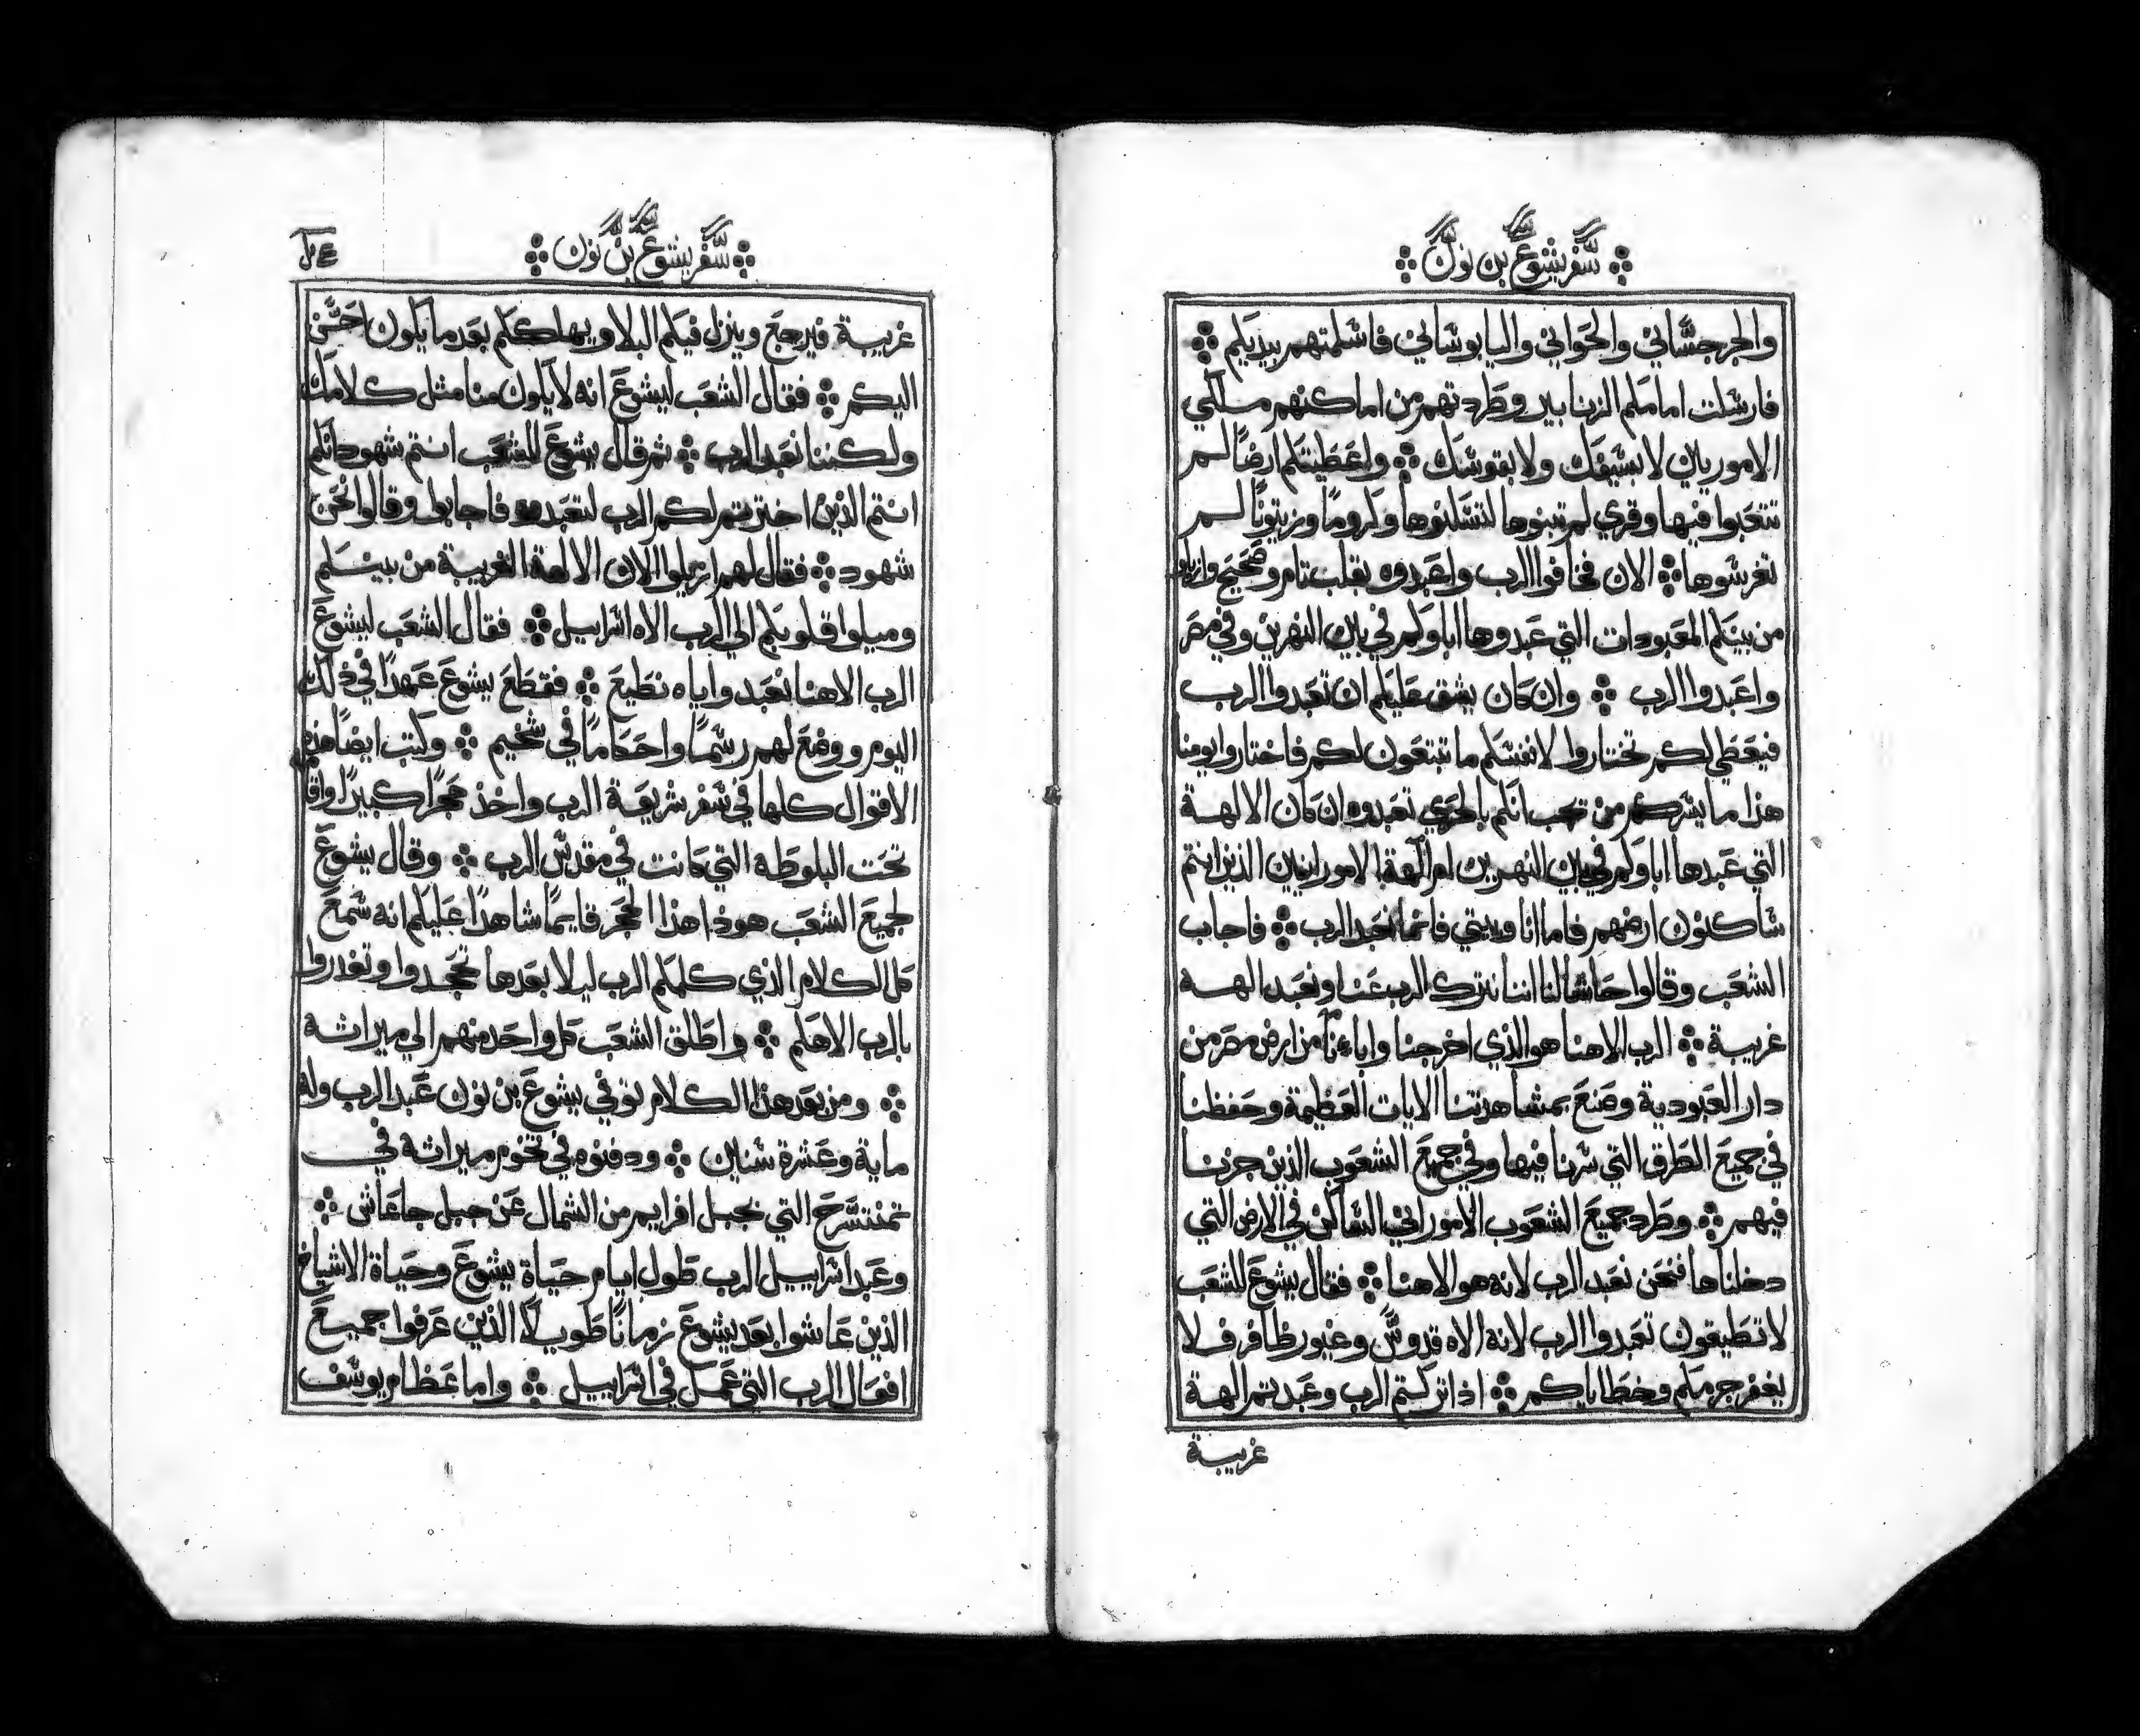 سفر يشوع بن نون
والجرجسّاني والحَواني واليابوسَاني فاسَلمتهم بيديكم
فارسَلت امامَكم الزنابير وطَردتهم من اماكنهم مسلكي
الاموريين لا بسَيفك ولا بقوسَك واعَطَيتكم ارضًا لم
تتعَبوا فيها وقري لم تبنوها لتسَكنوها وكرومًا وزيتونًا لم
تغرسَوها الان فخافوا الرب واعَبدوه بقلب تام وصَحَيح وازيلوا
من بينكم المعَبودات التي عَبدوها اباوكم في بين النهرين وفي مصَر
واعَبدوا الرب وان كان يشق عَليكم ان تعَبدوا الرب
فيعَطَي لكم تختاروا لانفسَكم ما تبتعَون لكم فاختاروا يومنا
هذا ما يسَركم من تحَب انكم بالحَري تعَبدوه ان كان الالهة
التي عَبدها اباوكم في بين النهرين ام الهة الامورانيين الذين انتم
سَاكنون ارضهم فاما انا وبيتي فانما نعَبد الرب فاجاب
الشعَب وقالوا حَاشا لنا اننا نترك الرب عَنا ونعَبد الهة
غريبة الرب الاهنا هو الذي اخرجنا واباءنا من ارض مصَر من
دار العَبودية وصَنعَ بمشاهدتنا الايات العَظيمة وحَفظنا
في جميعَ الطَرق التي سَرنا فيها وفي جميعَ الشعَوب الذين جزنا
فيهم وطَرد جميعَ الشعَوب الاموراني السَاكن في الارض التي
دخلناها فنحَن نعَبد الرب لانه هو الاهنا فقال يشوعَ للشعَب
لا تطَيقون تعَبدوا الرب لانه الاه قدوسّ وغيور ظافر فلا
يغفر جرمكم وخطَاياكم اذا تركتم الرب وعَبدتم الهة
غريبة
سفر يشوع بن نون
غريبة فيرجعَ وينزل فيكم البلا ويهلككم بعَد ما يكون احَسّن
اليكم فقال الشعَب ليشوعَ انه لا يكون منا مثل كلامك
ولكننا نعَبد الرب ثم قال يشوعَ للشعَب انتم شهود انكم
انتم الذين اخترتم لكم الرب لتعَبدوه فاجابوا وقالوا نحَن
شهود فقال لهم ازيلوا الان الالهة الغريبة من بينكم
وميلوا قلوبكم الي الرب الاه اسَراييل فقال الشعَب ليشوعَ
الرب الاهنا نعَبد واياه نطَيعَ فقطَعَ يشوعَ عَهدًا في ذلك
اليوم ووضعَ لهم رسَمًا واحَكامًا في شخيم وكتب ايضًا هذه
الاقوال كلها في سَفر شريعَة الرب واخذ حجرًا كبيرًا واقا
تحَت البلوطَه التي كانت في مقدسّ الرب وقال يشوعَ
لجميعَ الشعَب هوذا هذا الحجَر قايمًا شاهدًا عَليكم انه سَمعَ
كل الكلام الذي كلمكم الرب ليلا بعَدها تجحَدوا وتغدروا
بالرب الاهكم واطَلق الشعَب كل واحَد منهم الي ميراثه
ومن بعَد هذا الكلام توفي يشوعَ بن نون عَبد الرب وله
ماية وعَشرة سَنين ودفنوه في تخوم ميراثه في
تمنتسَّرحَ التي بجبل افرايم من الشمال عَن جبل جاعَاش
وعَبد اسَراييل الرب طَول ايام حَياة يشوعَ وحَياة الاشياخ
الذين عَاشوا بعَد يشوعَ زمانًا طَويلًا الذين عَرفوا جميعَ
افعَال الرب التي عَمل في اسَراييل واما عَظام يوسَف